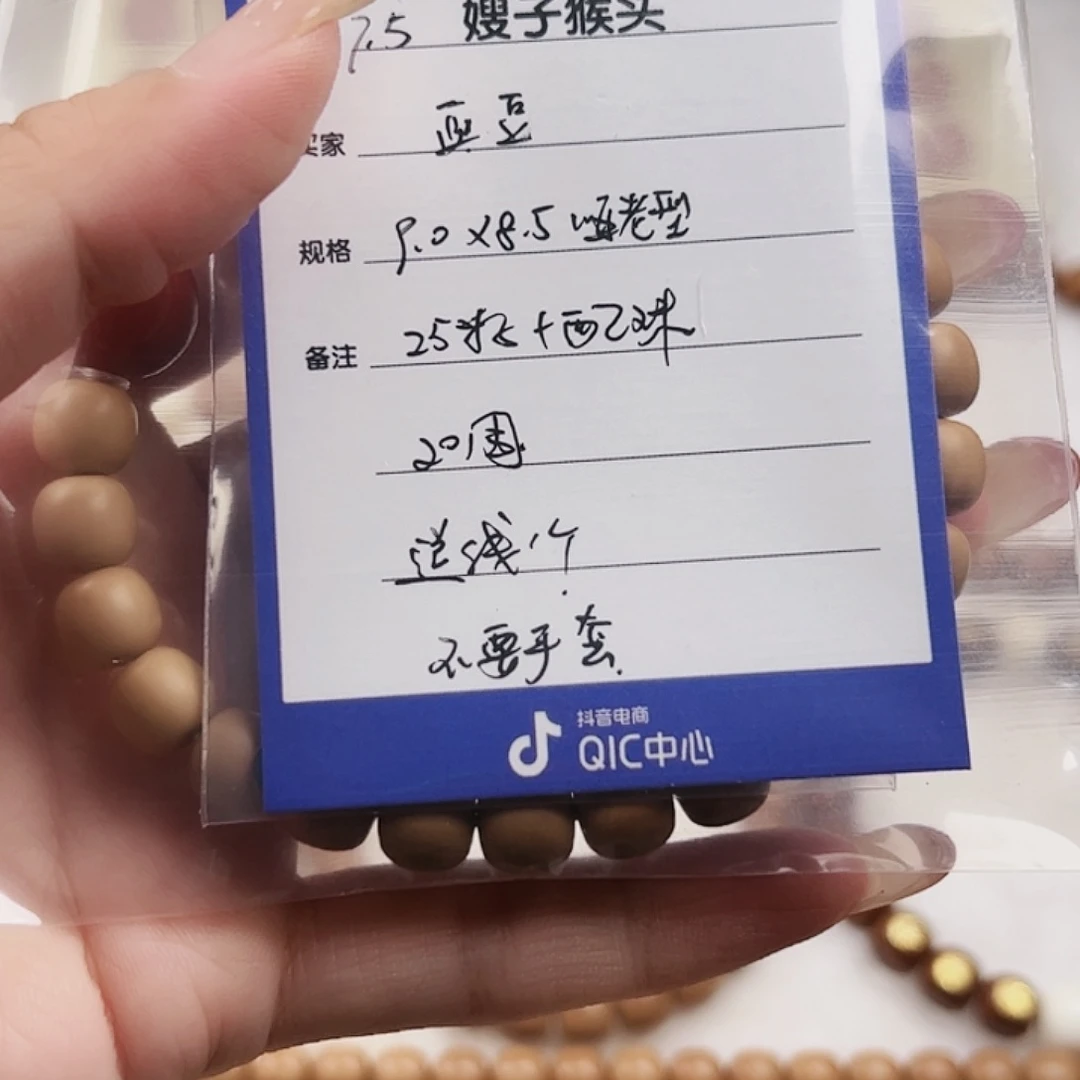 7.5 嫂子猴头
买家 豆豆
规格 9.0×8.5 哑老型
备注 25粒+配珠
20周
送绳1个
不要手套
抖音电商
QIC中心